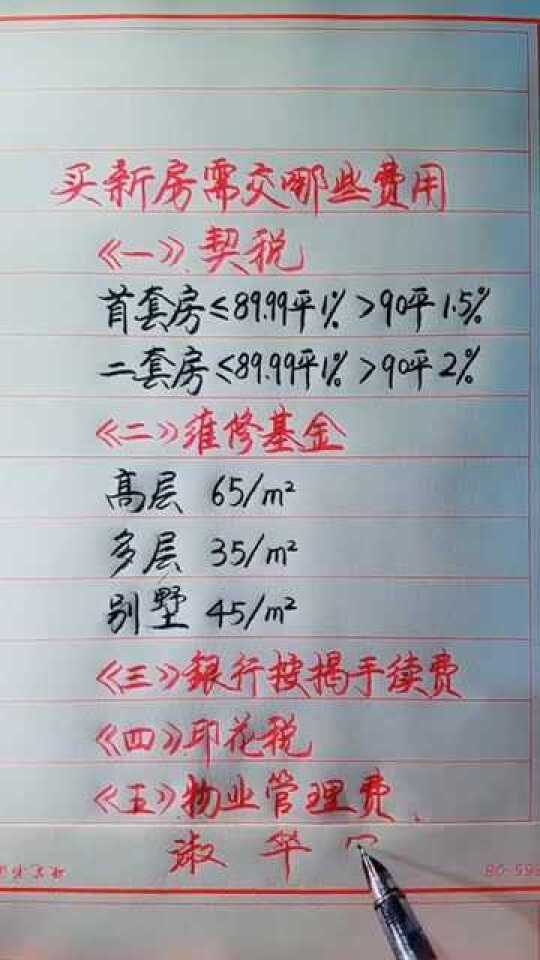 买新房需交哪些费用
《一》契税
首套房≤89.99平1% >90平1.5%
二套房≤89.99平1% >90平2%
《二》维修基金
高层 65/m²
多层 35/m²
别墅 45/m²
《三》銀行按揭手续费
《四》印花税
《五》物业管理费
淑华